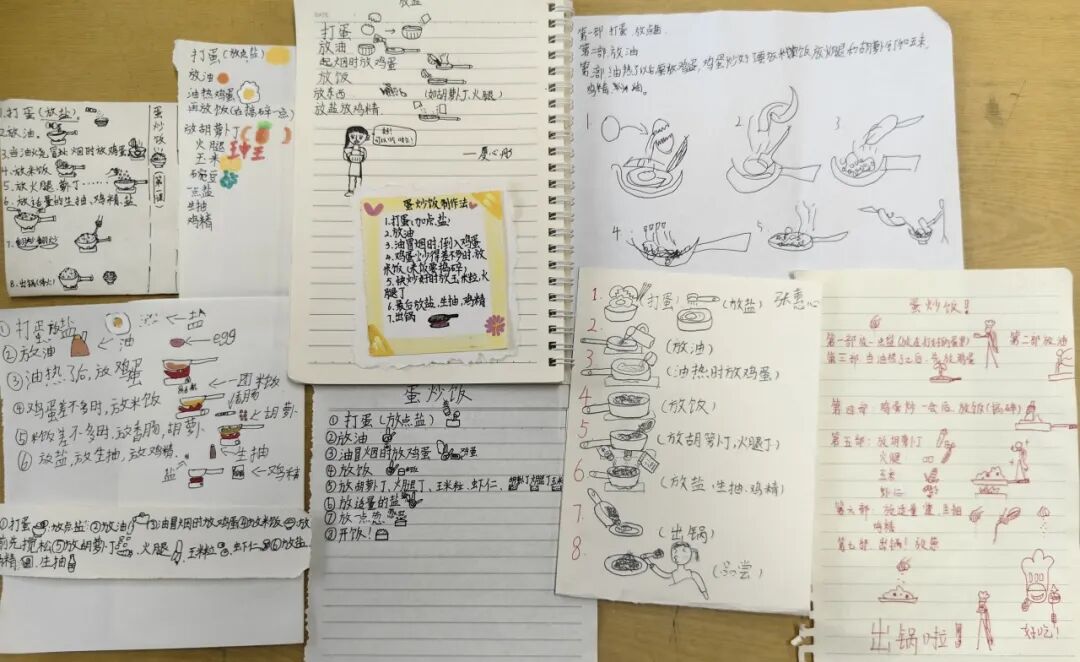 1.打蛋(放盐).
2.放油.
4.放米饭
6.放适量的生抽、鸡精、盐
8.出锅
蛋炒饭
打蛋(放点盐)
放油
油热鸡蛋
放胡萝卜丁
火腿
玉米
点盐
生抽
鸡精
放盐
打蛋
放油
起烟时放鸡蛋
放饭
放东西 (如胡萝卜丁,火腿)
放盐放鸡精
蛋炒饭制作法
1.打蛋(加点盐)
2.放油
3.油冒烟时,倒入鸡蛋
4.鸡蛋炒得差不多时,放
米饭(米饭要捣碎)
5.快炒好时放玉米粒,火
腿丁
6.最后放盐、生抽、鸡精
7.出锅
第一部 打蛋 放点盐
第二部 放油
1
2
3
4
5
① 打蛋放盐 ←盐
② 放油 ←油 ←egg
③ 油热了后,放鸡蛋
④ 鸡蛋差不多时,放米饭 ←一团米饭
⑤ 米饭差不多时,放香肠,胡萝卜 香肠 ←胡萝卜
⑥ 放盐,放生抽,放鸡精. ←生抽
盐 ←鸡精
蛋炒饭
① 打蛋(放点盐)
② 放油
③ 油冒烟时放鸡蛋
④ 放饭
⑤ 放胡萝卜丁、火腿丁、玉米粒、虾仁、
⑥ 放适量的盐
⑦ 放一点葱
⑧ 开饭!
1. (打蛋) (放盐) 张惠心
2. (放油)
3 (油热时放鸡蛋)
4 (放饭)
5 (放胡萝卜丁,火腿丁)
6 (放盐,生抽,鸡精)
7. (出锅)
8. (品尝)
蛋炒饭!
第二部 放油
第三部:当油热了之后,先放鸡蛋
第四部:鸡蛋炒一会后,放饭(捣碎)
第五部:放胡萝卜丁
火腿
玉米
虾仁
第六部:放适量 盐 生抽
鸡精
出锅啦!
好吃!
①打蛋 放点盐 ②放油 ③油冒烟时放鸡蛋 ④放米饭 放
前先搅松 ⑤放胡萝卜丁 火腿 玉米粒 虾仁 ⑥放盐
鸡精 生抽